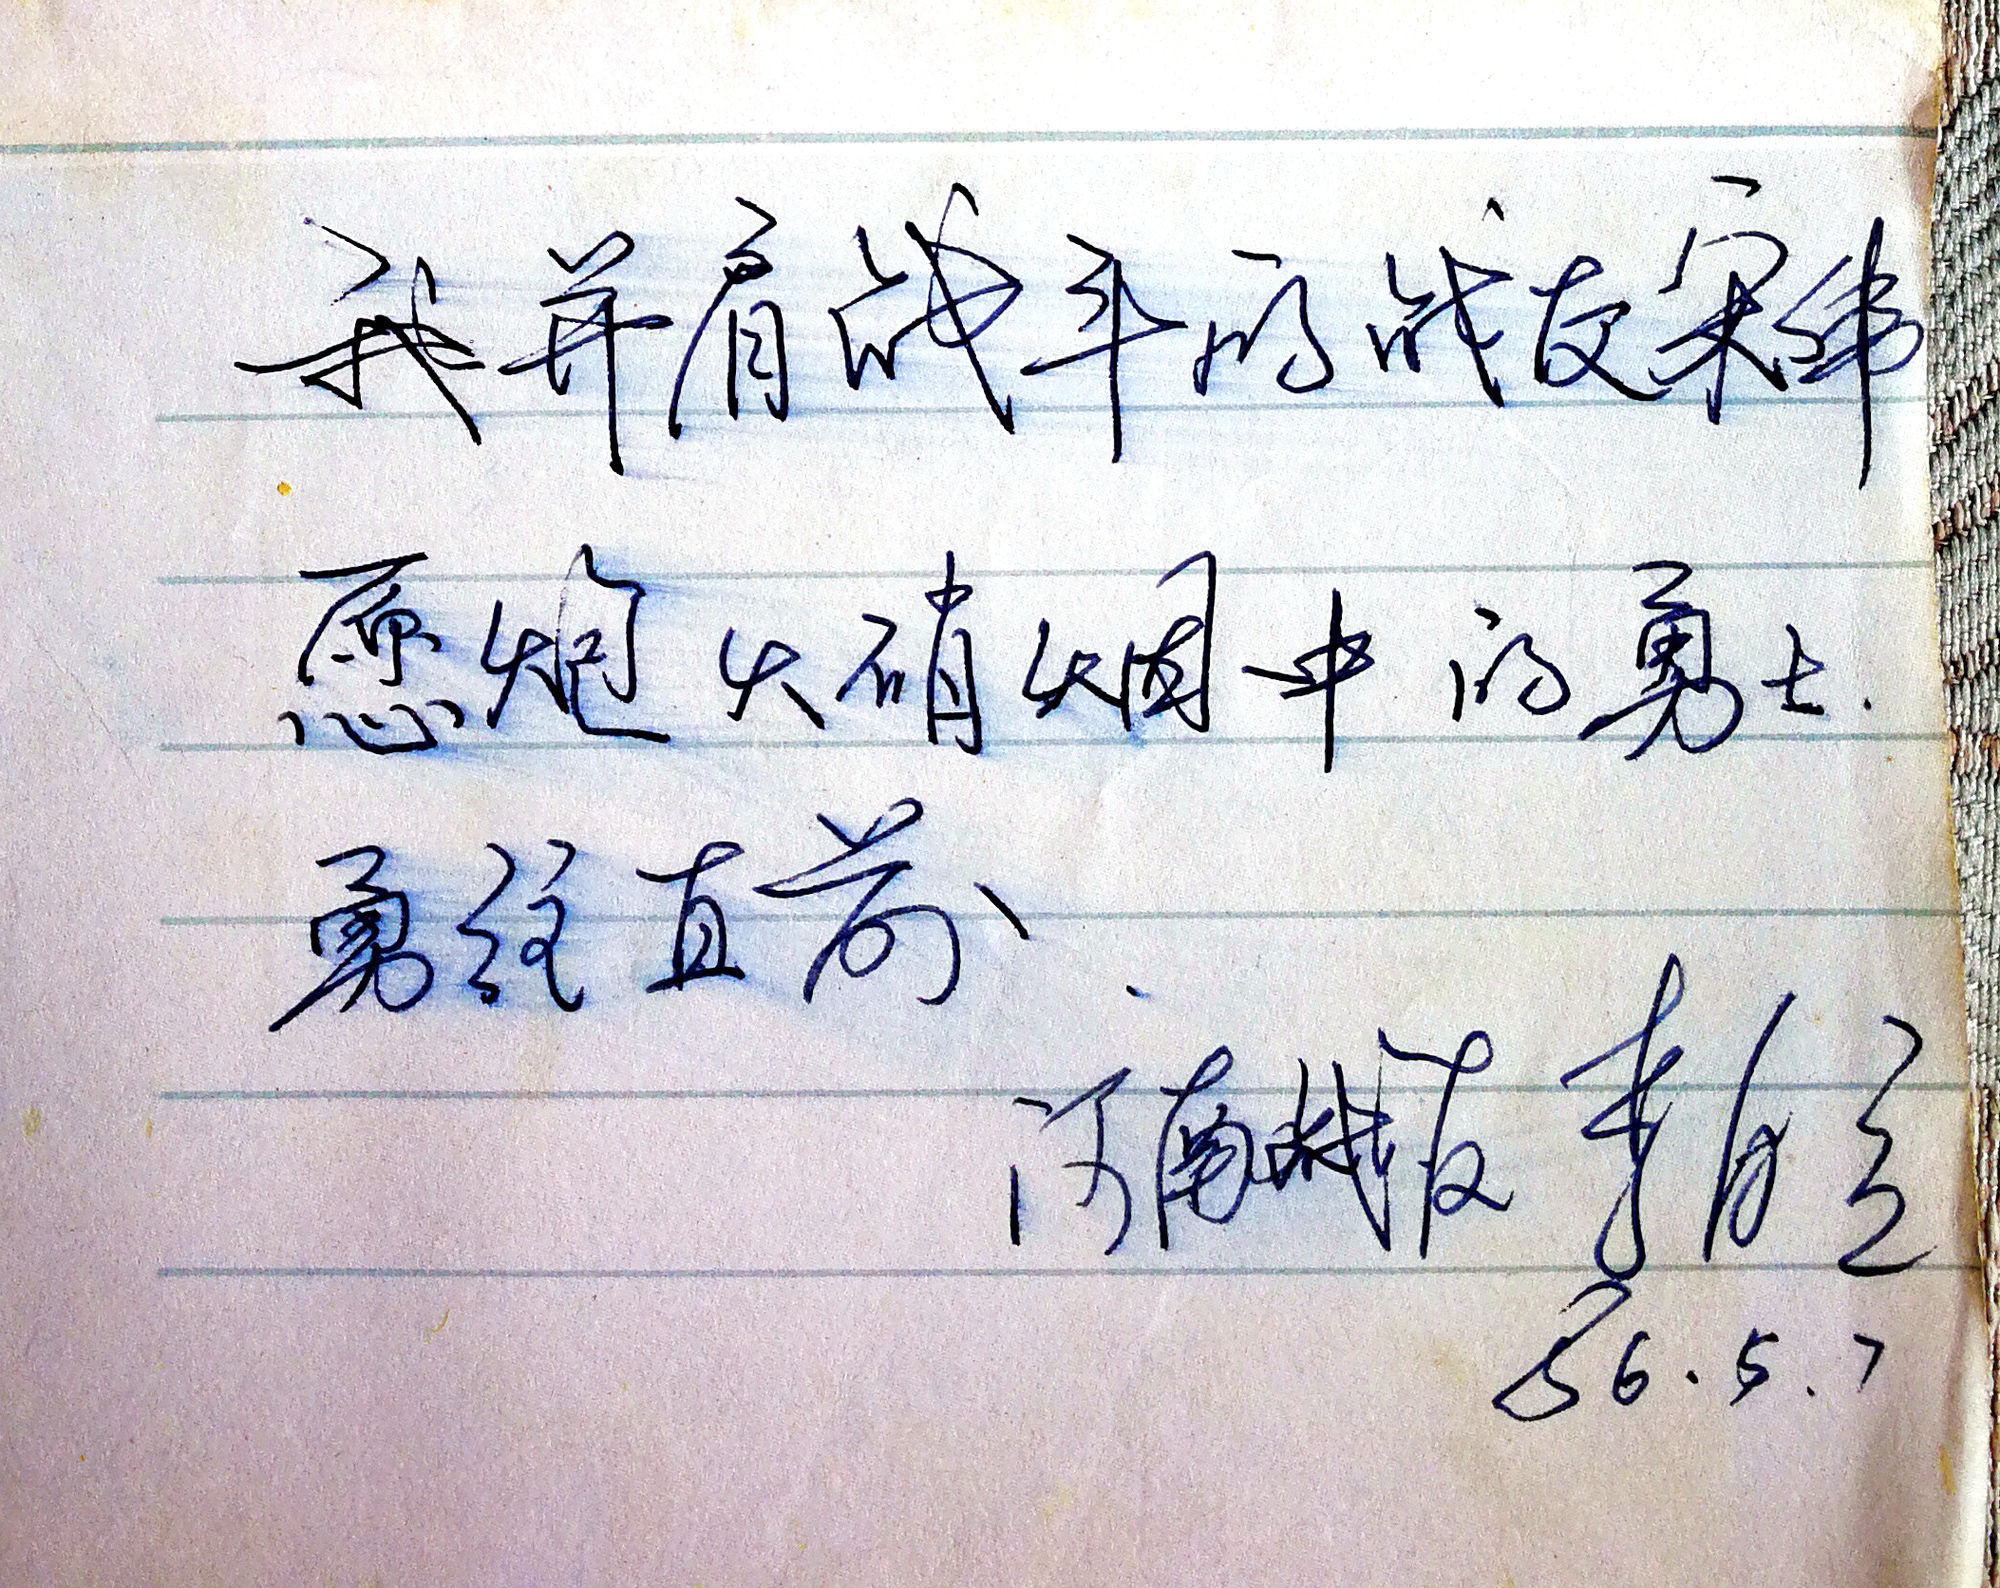 我并肩战斗的战友宋伟
愿炮火硝烟中的勇士.
勇往直前、.
河南战友 李
86.5.7